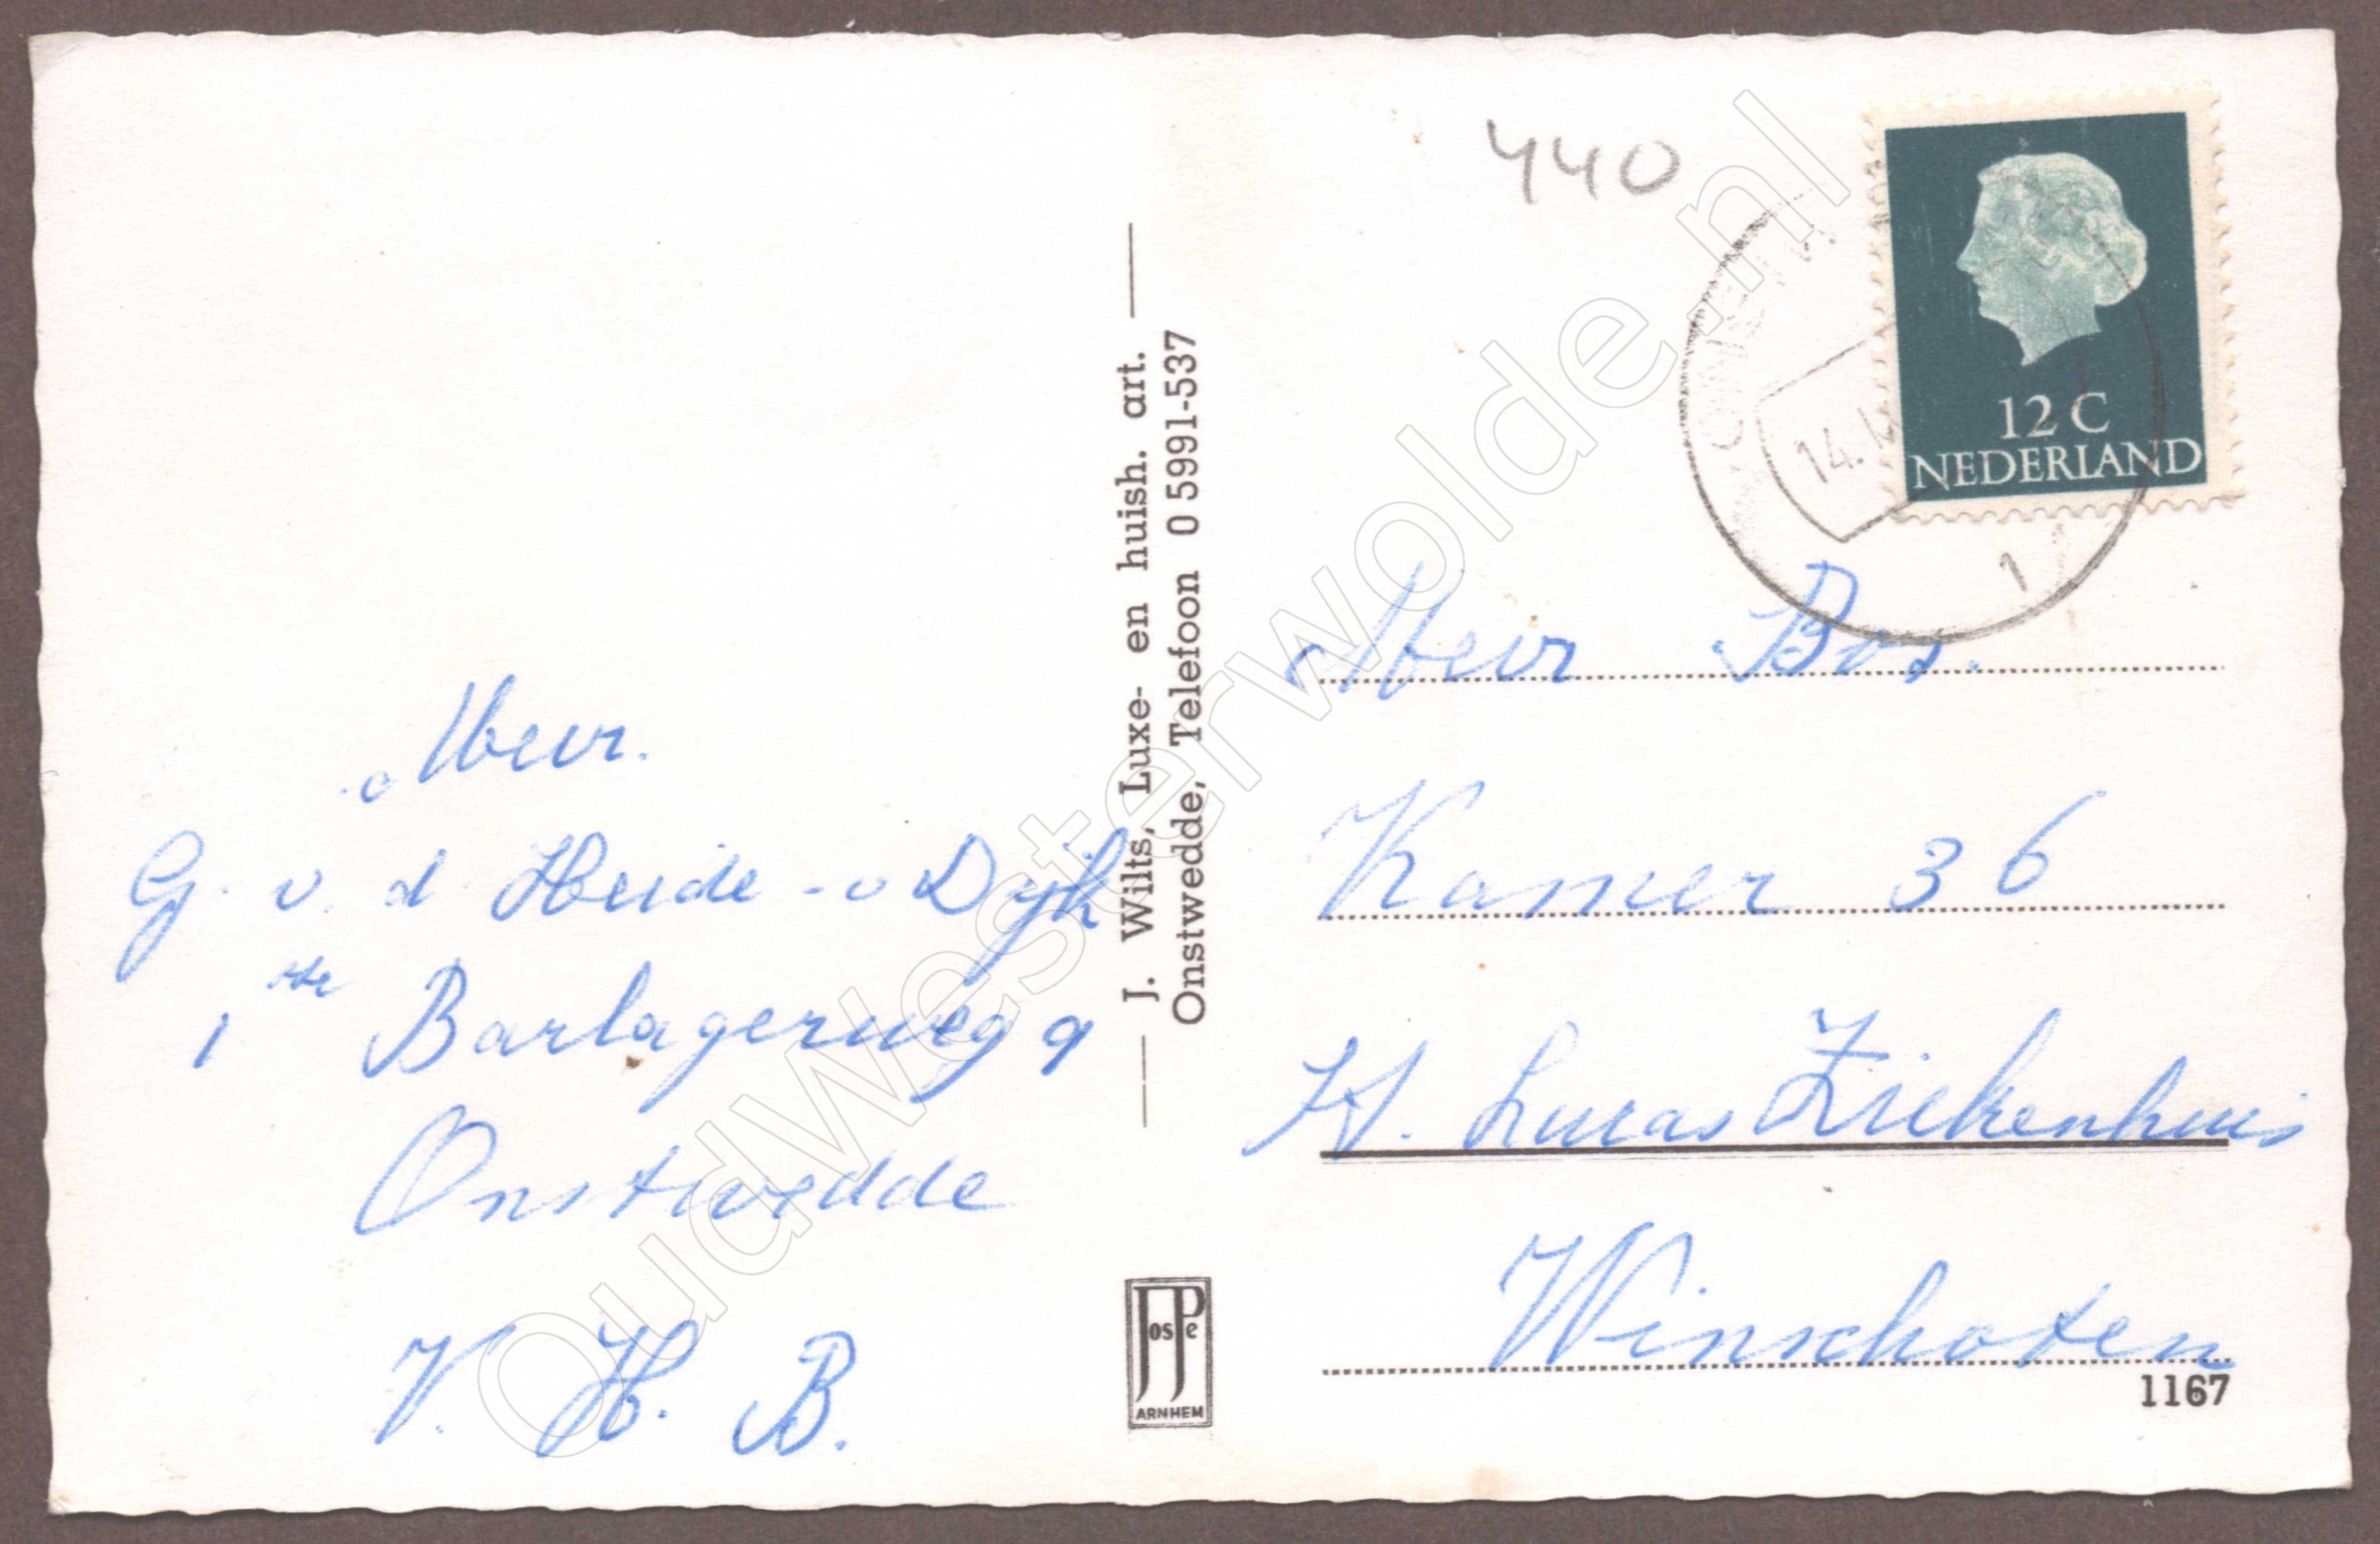 440
12 C
NEDERLAND
14.
1
Mevr.
G. v. d. Heide - v Dijk
1 ste Barlagerweg 9
Onstwedde
V. H. B.
J. Wilts, Luxe- en huish. art.
Onstwedde, Telefoon 0 5991-537
JosPe
ARNHEM
Mevr Bos.
Kamer 36
St. Lucas Ziekenhuis
Winschoten
1167
OudWesterwolde.nl